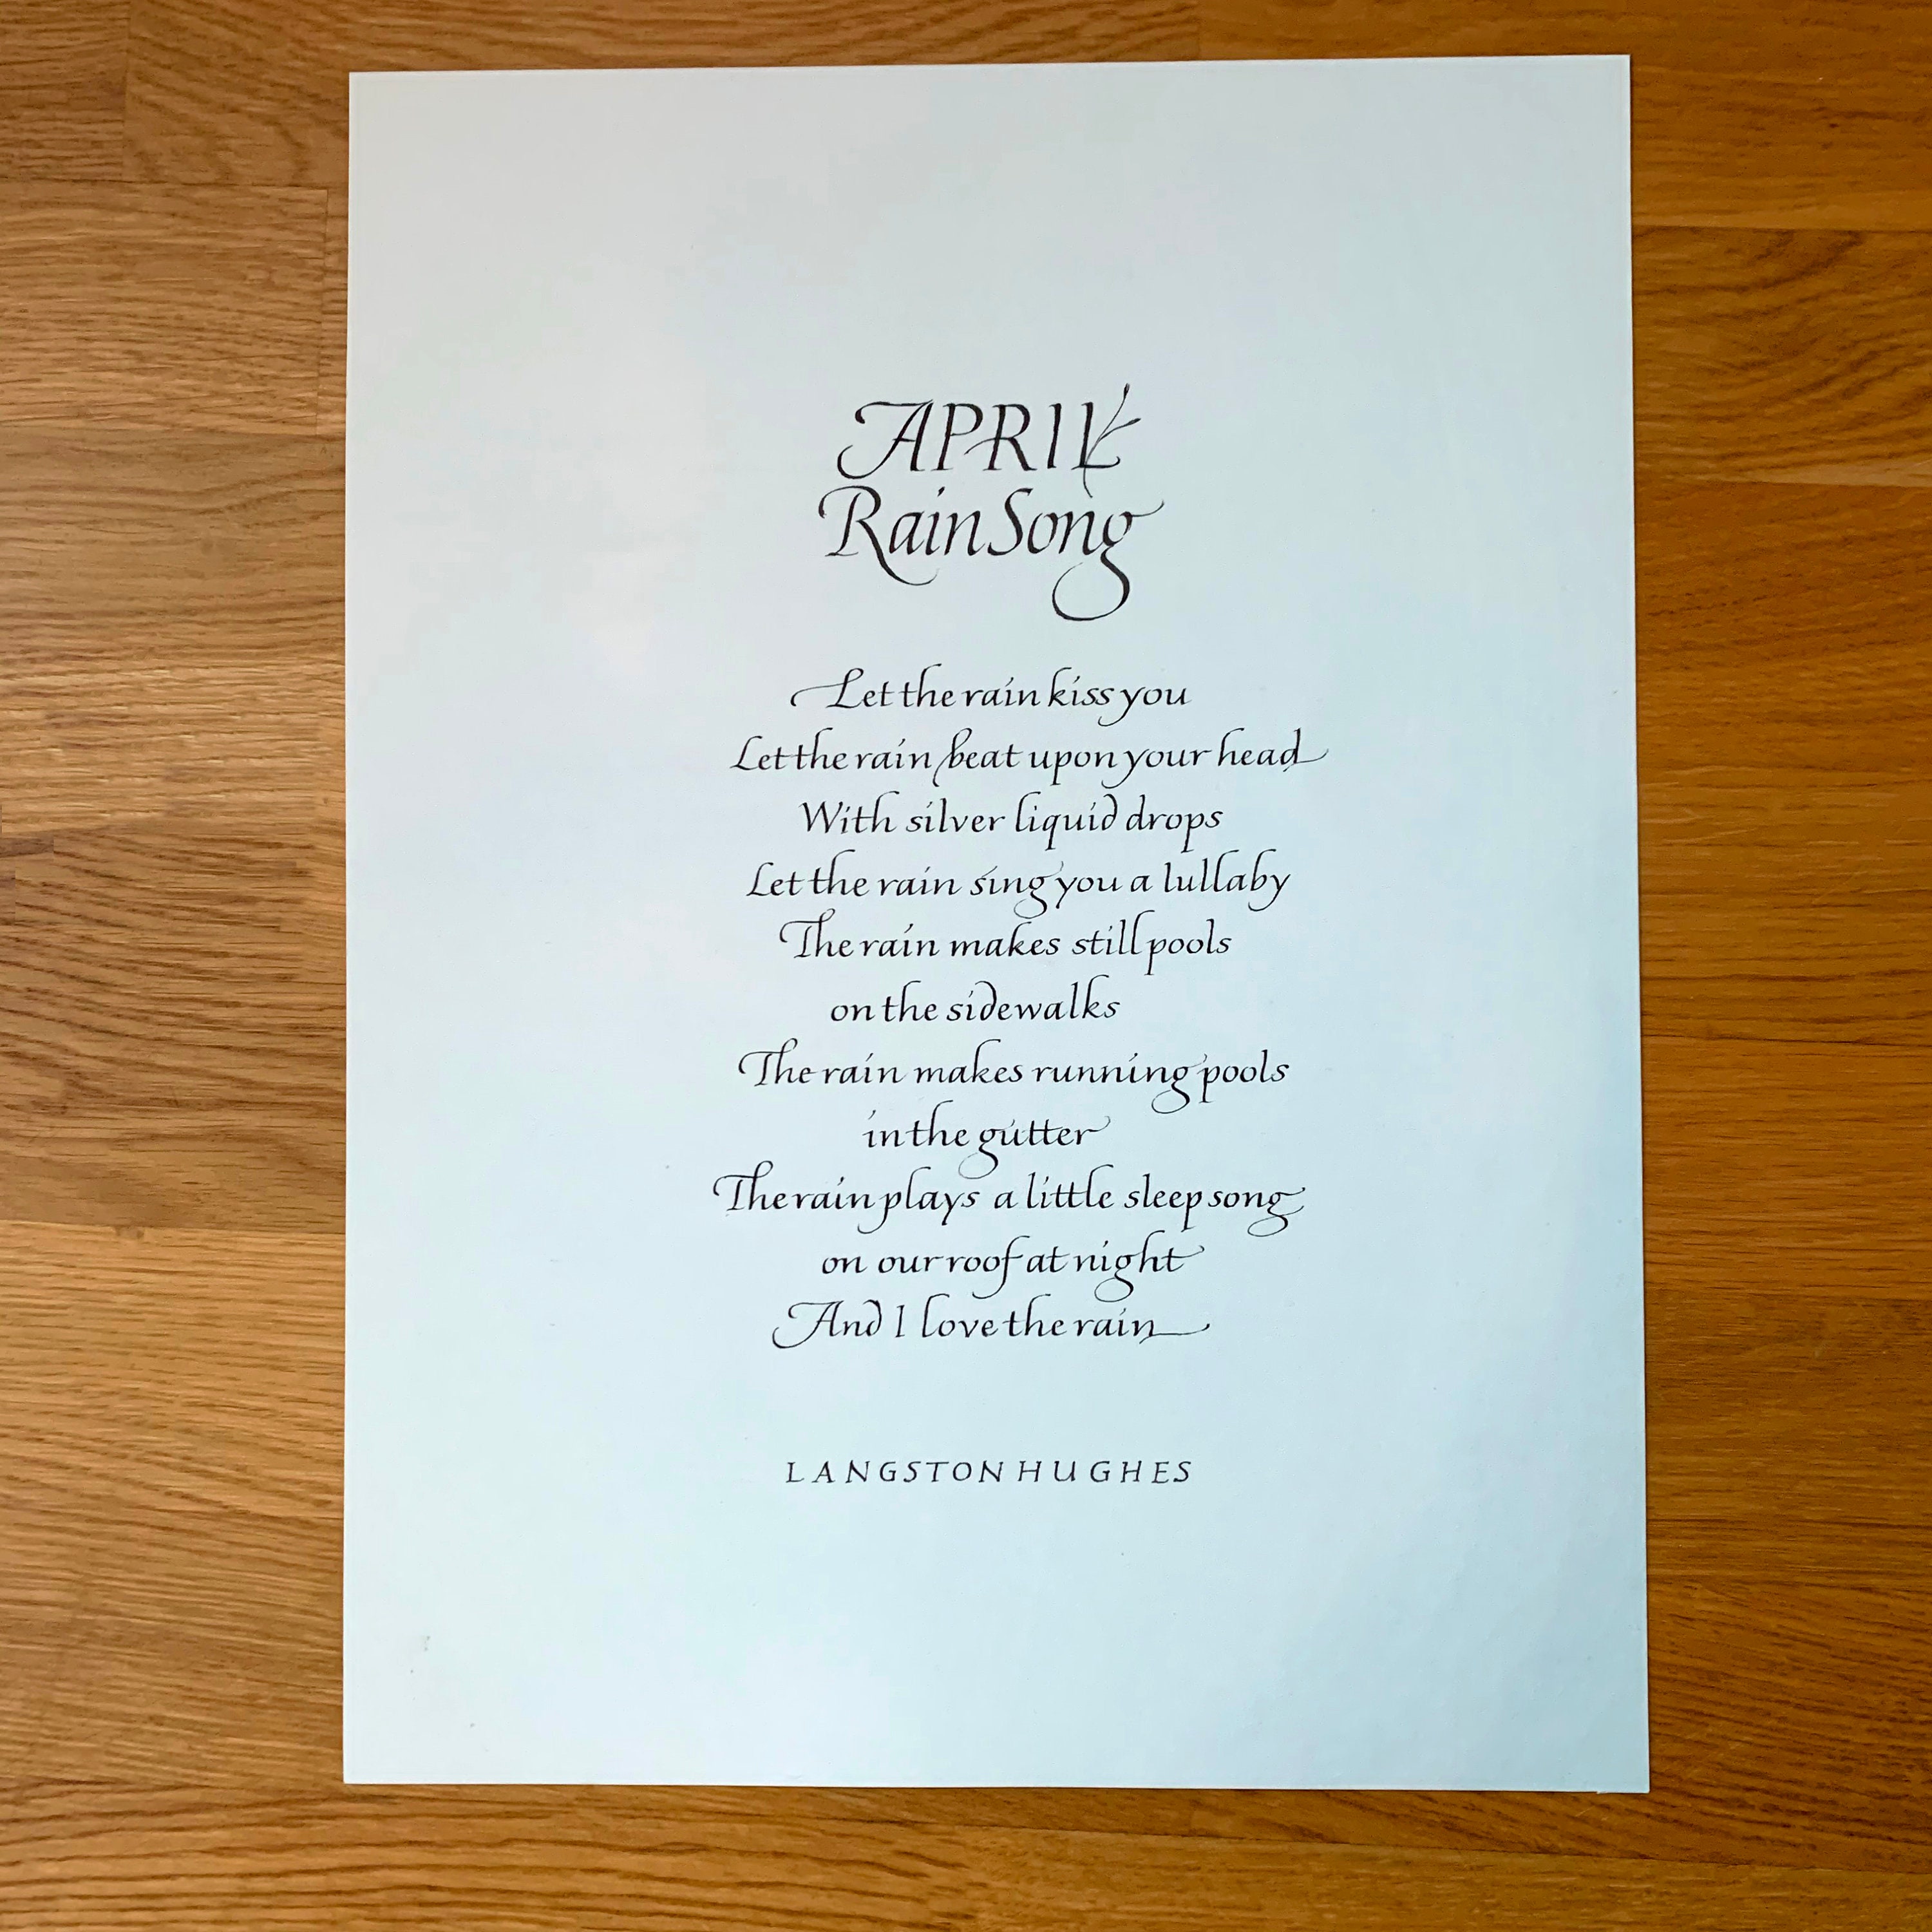 APRIL
Rain Song
Let the rain kiss you
Let the rain beat upon your head
With silver liquid drops
Let the rain sing you a lullaby
The rain makes still pools
on the sidewalks
The rain makes running pools
in the gutter
The rain plays a little sleep song
on our roof at night
And I love the rain
LANGSTON HUGHES